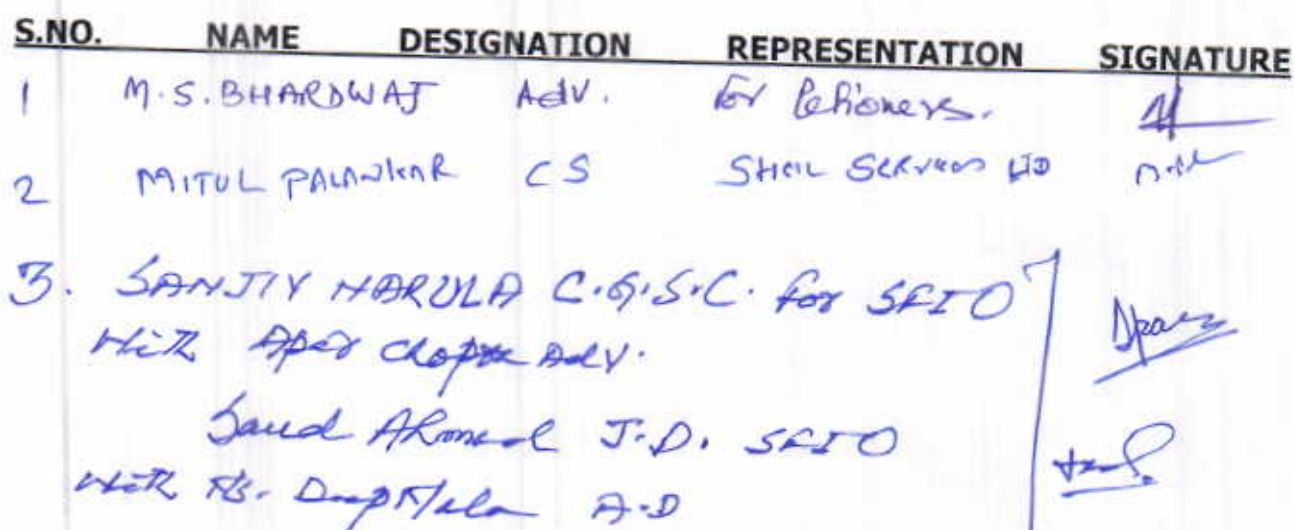 S.NO. NAME DESIGNATION REPRESENTATION SIGNATURE
1 M.S.BHARDWAJ Adv. for Petioners.
2 MITUL PALANKAR CS SHCIL SERVICES LTD
3. SANJIV NARULA C.G.S.C. for SFIO
With Apar Chopra Adv.
Saud Ahmad J.D. SFIO
With Ms. Deep Mala A.D